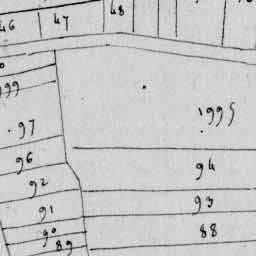 46 47 48
99
97 1995
96 94
92
91 93
90 88
89